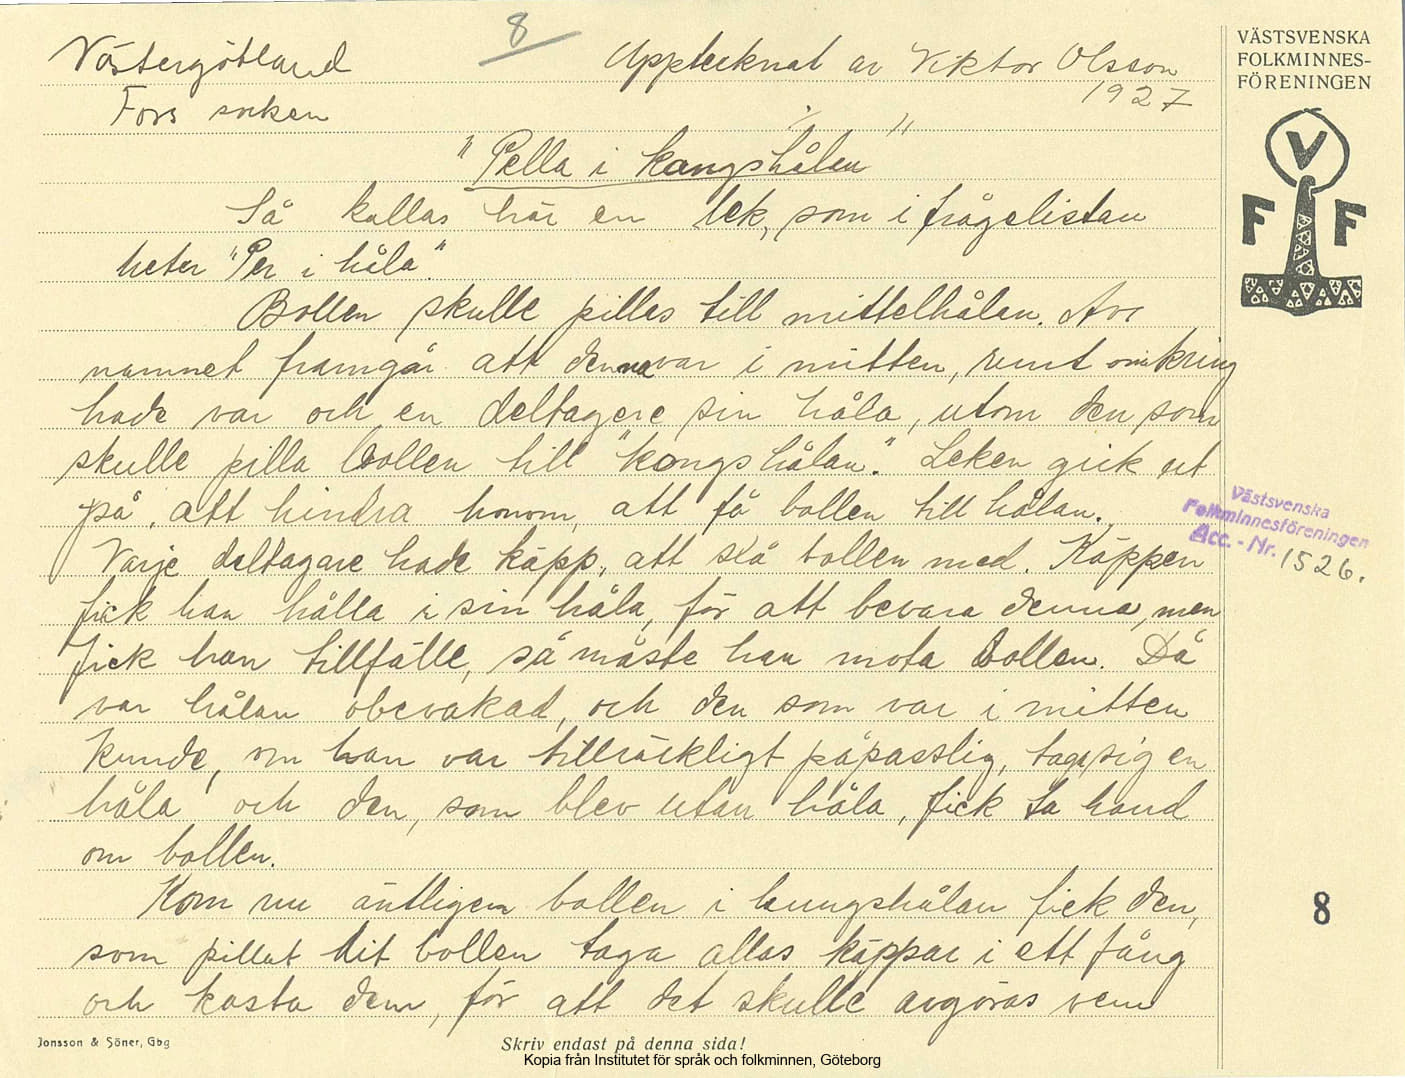 8
Västergötland
Fors socken
Upptecknat av Viktor Olsson
1927
"Pella i kangshålan"
Så kallas här en lek, som i frågelistan
heter "Per i håla".
Bollen skulle pillas till mittelhålan. Av
namnet framgår att denna var i mitten, runt omkring
hade var och en deltagere sin håla, utom den som
skulle pilla bollen till "kongshålan". Leken gick ut
på, att hindra honom, att få bollen till hålan.
Varje deltagare hade käpp, att slå bollen med. Käppen
fick han hålla i sin håla, för att bevara denna, men
fick han tillfälle, så måste han mota bollen. Då
var hålan obevakad, och den som var i mitten
kunde, om han var tillräckligt påpasslig, taga sig en
håla och den, som blev utan håla, fick ta hand
om bollen.
Kom nu äntligen bollen i kungshålan fick den,
som pillat dit bollen taga allas käppar i ett fång
och kasta dem, för att det skulle avgöras vem
VÄSTSVENSKA
FOLKMINNES-
FÖRENINGEN
V
F F
Västsvenska
Folkminnesföreningen
Acc. - Nr. 1526.
8
Jonsson & Söner, Gbg
Skriv endast på denna sida!
Kopia från Institutet för språk och folkminnen, Göteborg